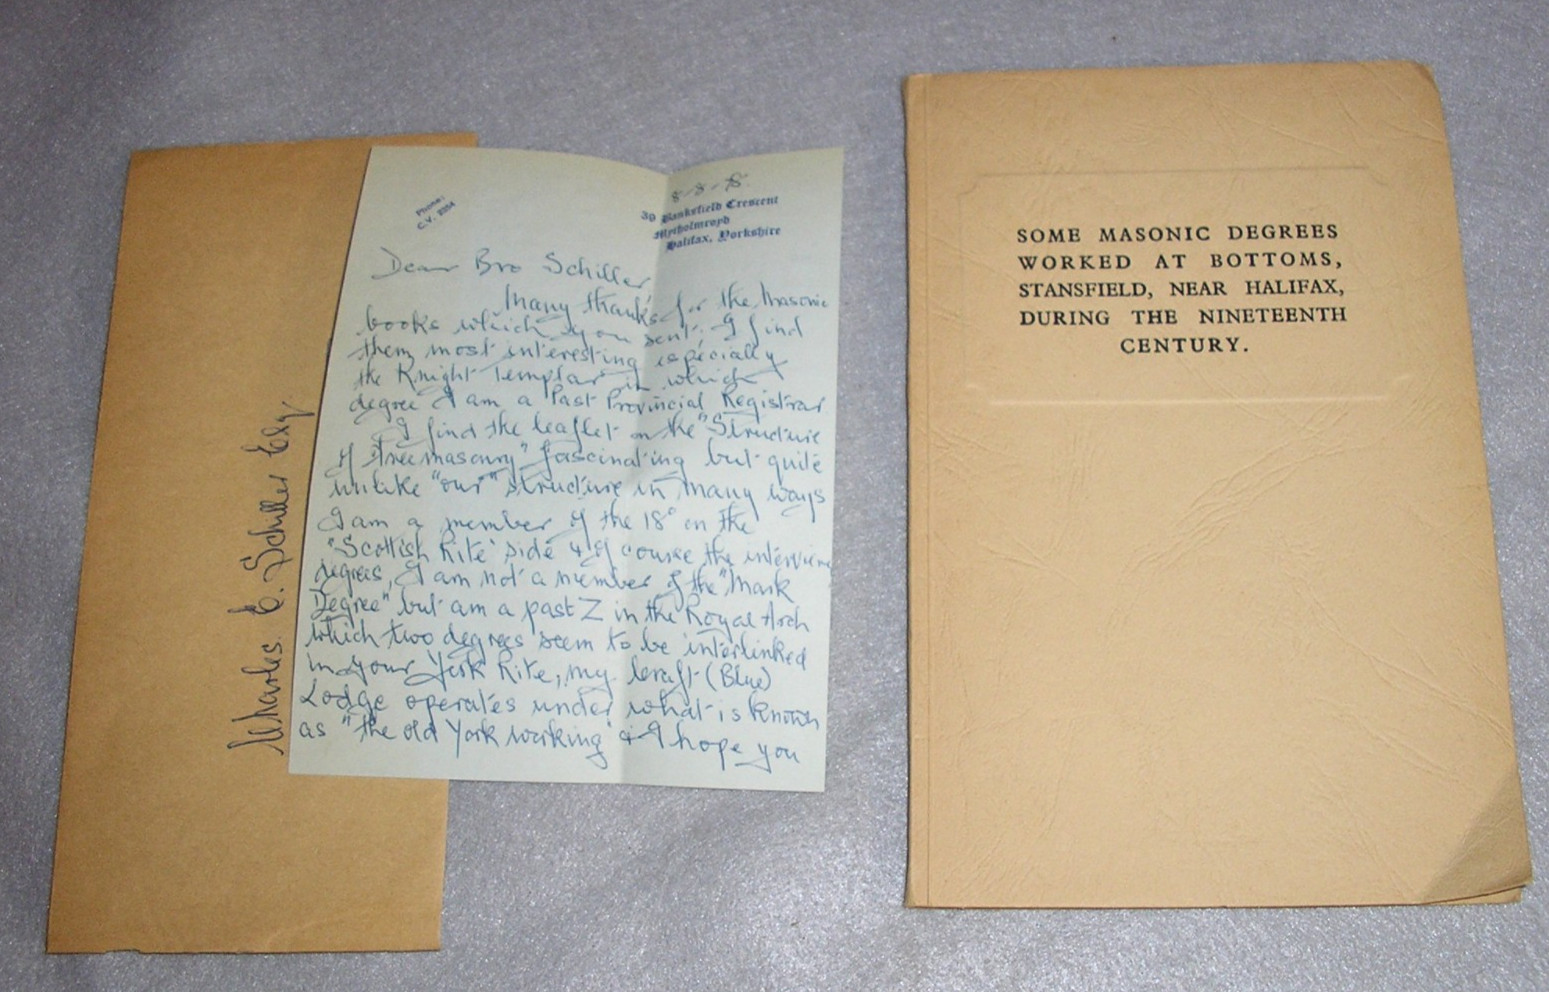 Charles E. Schiller Esq
Phone:
C.V. 2394
8-8-
39 Banksfield Crescent
Mytholmroyd
Halifax, Yorkshire
Dear Bro Schiller,
Many thanks for the Masonic
books which you sent. I find
them most interesting especially
the Knight Templar in which
degree I am a Past Provincial Registrar.
I find the leaflet on the "Structure
of Freemasonry" fascinating but quite
unlike "our" structure in many ways
I am a member of the 18° on the
"Scottish Rite" side & of course the
degrees, I am not a member of the "Mark
Degree" but am a past Z in the Royal Arch
which two degrees seem to be interlinked
in your York Rite, my Craft (Blue)
Lodge operates under what is known
as "the old York working" & I hope you
SOME MASONIC DEGREES
WORKED AT BOTTOMS,
STANSFIELD, NEAR HALIFAX,
DURING THE NINETEENTH
CENTURY.